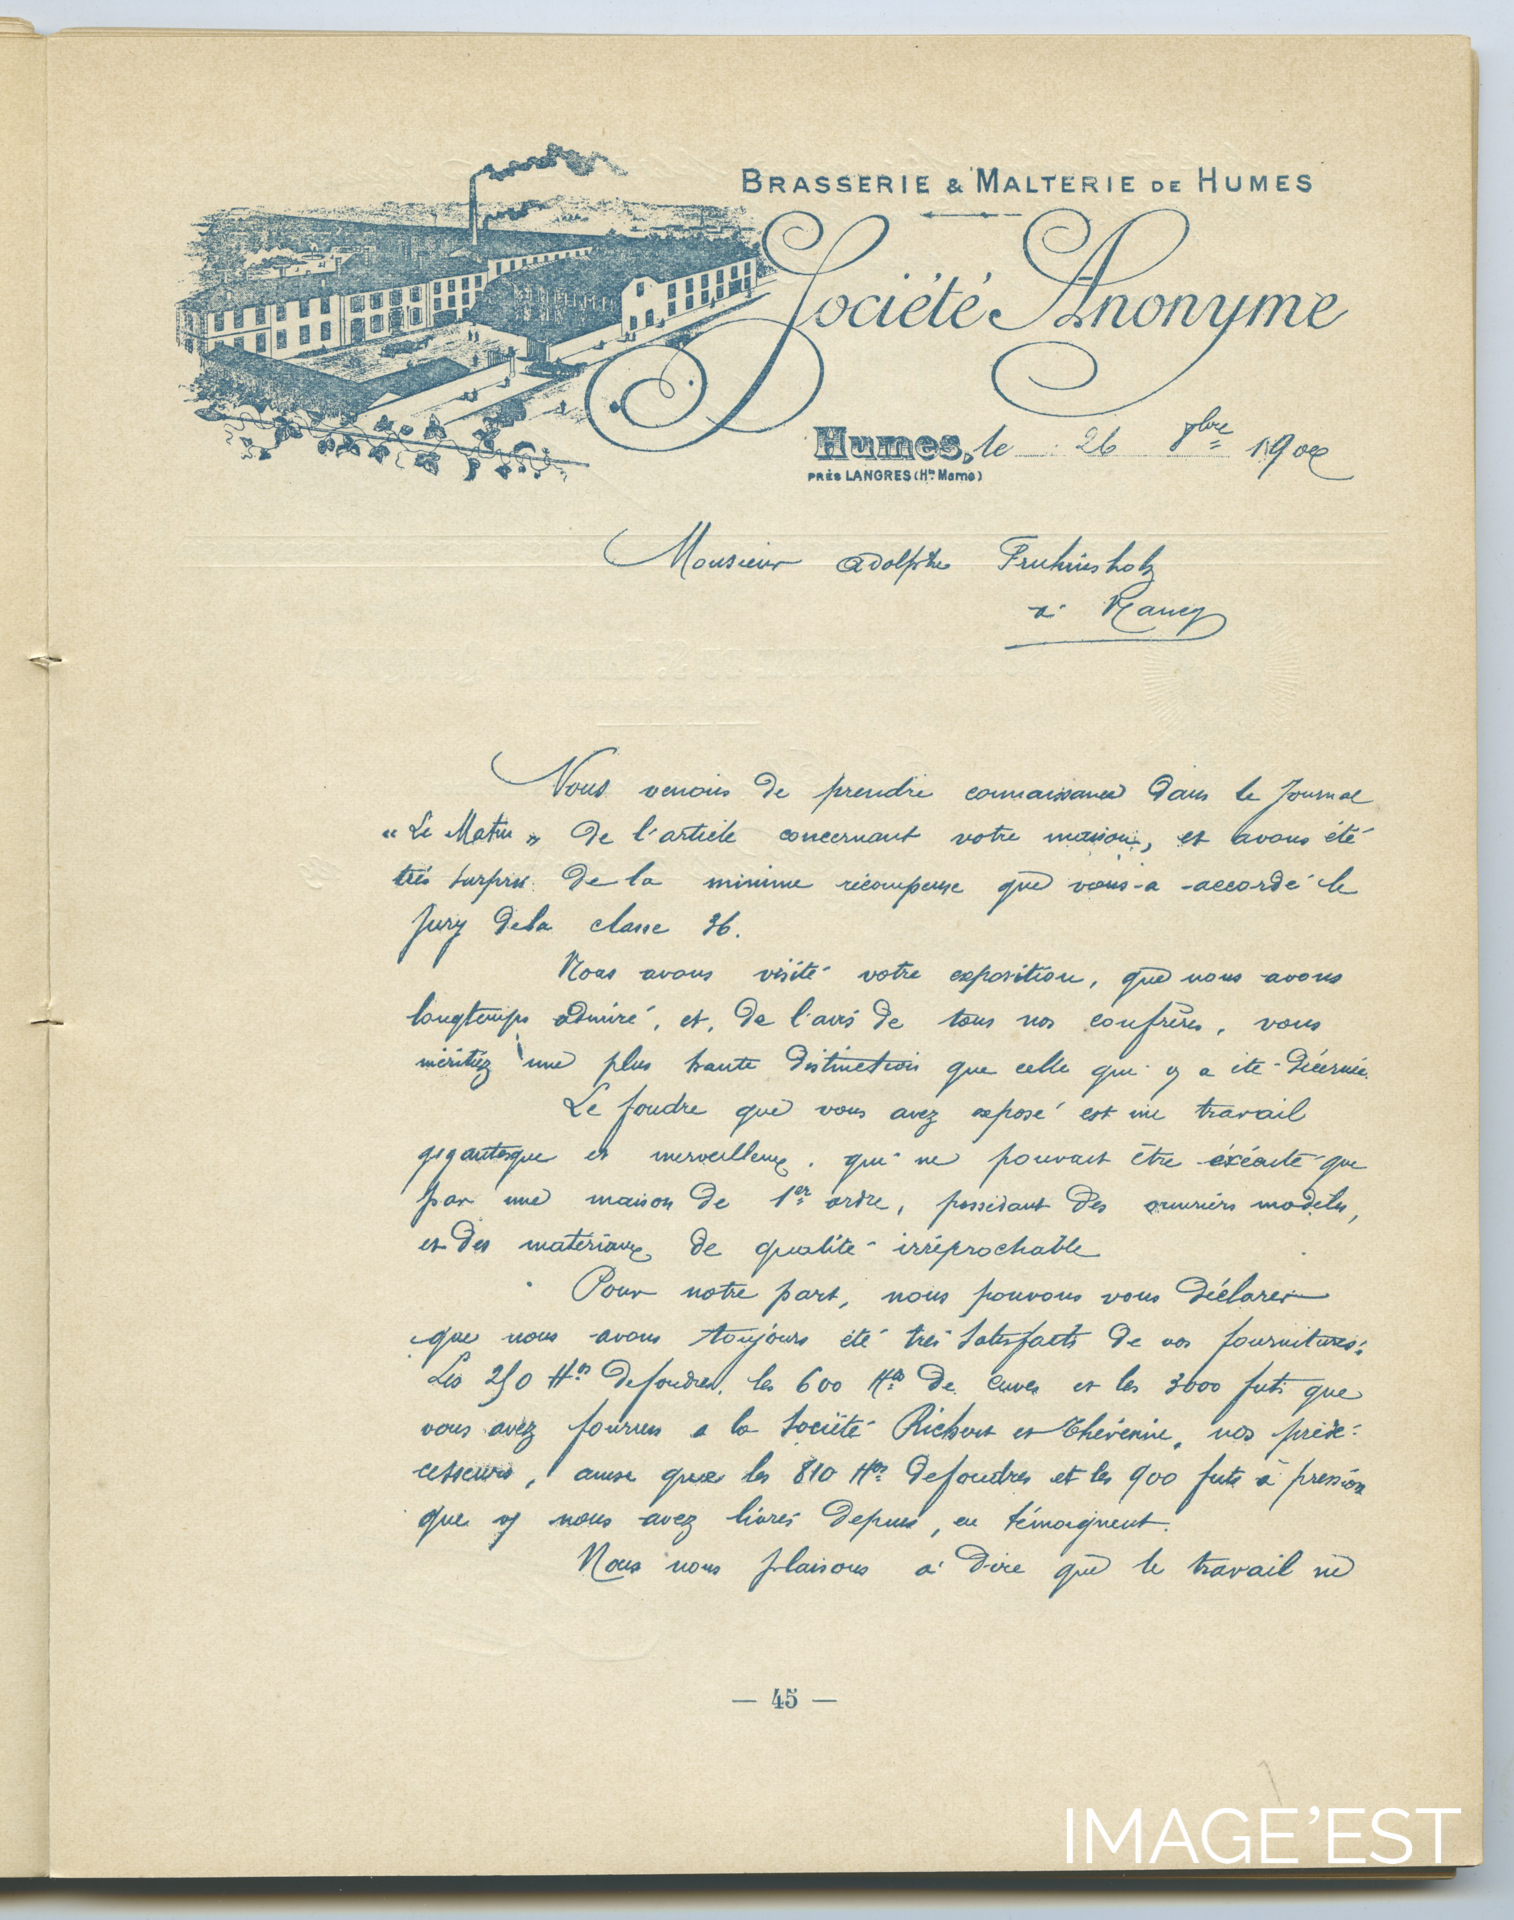 BRASSERIE & MALTERIE DE HUMES
Société Anonyme
Humes, le 26 8bre 1900
PRÈS LANGRES (Hte Marne)
Monsieur Adolphe Fruhinsholz
à Nancy
Nous venons de prendre connaissance dans le journal
"Le Matin" de l'article concernant votre maison, et avons été
très surpris de la minime récompense que vous a accordé le
Jury de la classe 36.
Nous avons visité votre exposition, que nous avons
longtemps admiré, et, de l'avis de tous nos confrères, vous
méritiez une plus haute distinction que celle qui y a été décernée.
Le foudre que vous avez exposé est un travail
gigantesque et merveilleux, qui ne pouvait être éxécuté que
par une maison de 1er ordre, possédant des ouvriers modèles,
et des matériaux de qualité irréprochable
Pour notre part, nous pouvons vous déclarer
que nous avons toujours été très satisfaits de vos fournitures:
Les 250 Hos de foudres, les 600 Hos de cuves et les 3000 futs que
vous avez fournis a la Société Richard et Thévenin, nos prédé-
cesseurs, ainsi que les 810 Hos de foudres et les 900 futs à pression
que v/ nous avez livrés depuis, en témoignent.
Nous nous plaisons à dire que le travail ne
— 45 —
IMAGE'EST